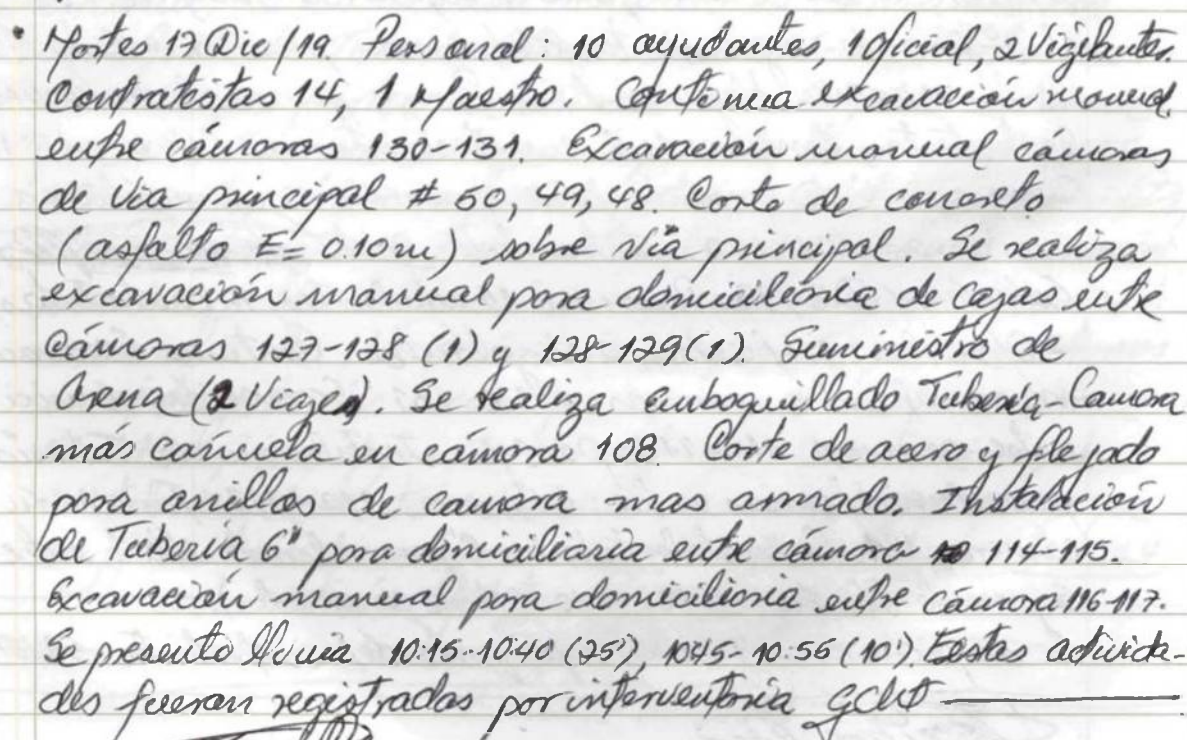 • Martes 17 Dic/19. Personal: 10 ayudantes, 1 Oficial, 2 Vigilantes.
Contratistas 14, 1 Maestro. Continua excavación manual
entre cámaras 130-131. Excavación manual cámaras
de via principal # 50, 49, 48. Corte de concreto
(asfalto E= 0.10m) sobre via principal. Se realiza
excavación manual para domiciliaria de cajas entre
Cámaras 127-128 (1) y 128-129(1). Suministro de
Arena (2 Viajes). Se realiza emboquillado Tuberia-Camara
más cañuela en cámara 108. Corte de acero y flejado
para anillos de camara mas armado. Instalación
de Tuberia 6" para domiciliaria entre cámara 114-115.
Excavación manual para domiciliaria entre cámara 116-117.
Se presento lluvia 10:15-10:40 (25'), 10:45-10:55 (10'). Estas activida-
des fueran registradas por interventoria